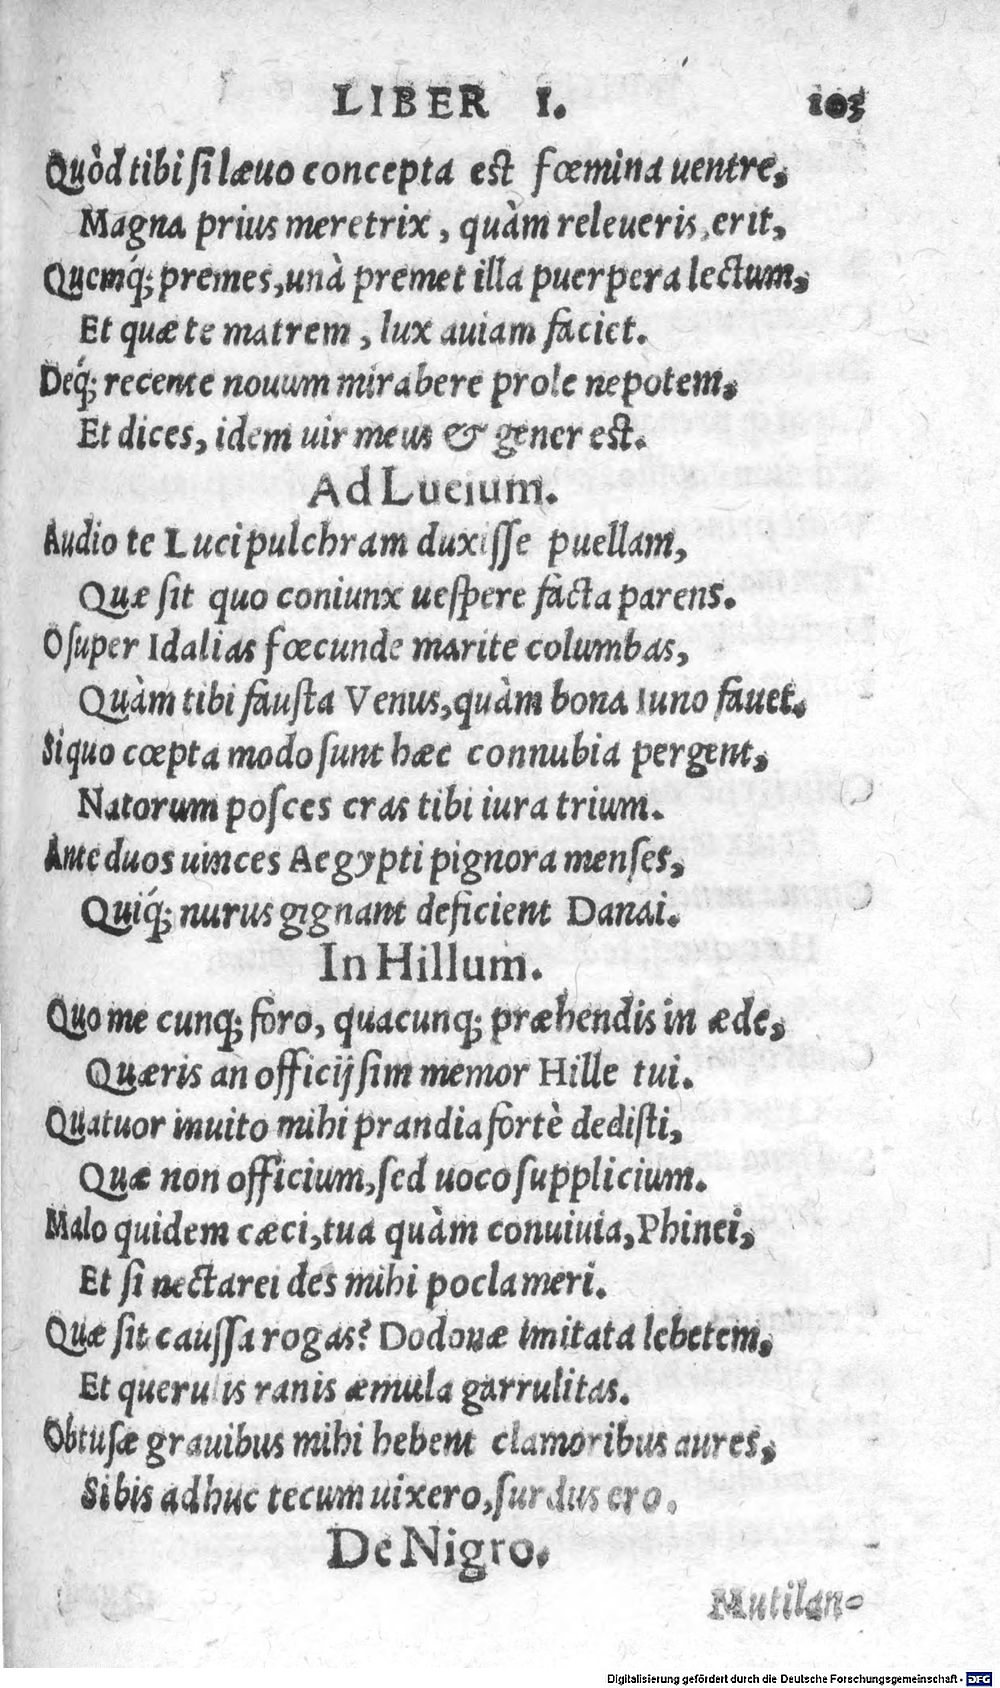 LIBER I. 103
Quòd tibi si læuo concepta est fœmina uentre,
Magna prius meretrix, quàm releueris, erit,
Quemq́; premes, unà premet illa puerpera lectum,
Et quæ te matrem, lux auiam faciet.
Deq́; recente nouum mirabere prole nepotem,
Et dices, idem uir meus & gener est.
Ad Lucium.
Audio te Luci pulchram duxisse puellam,
Quæ sit quo coniunx uespere facta parens.
O super Idalias fœcunde marite columbas,
Quàm tibi fausta Venus, quàm bona Iuno fauet.
Si quo cœpta modo sunt hæc connubia pergent,
Natorum posces cras tibi iura trium.
Ante duos uinces Aegypti pignora menses,
Quiq́; nurus gignant deficient Danai.
In Hillum.
Quo me cunq; foro, quacunq; præhendis in æde,
Quæris an officij sim memor Hille tui.
Quatuor inuito mihi prandia fortè dedisti,
Quæ non officium, sed uoco supplicium.
Malo quidem cæci, tua quàm conuiuia, Phinei,
Et si nectarei des mihi pocla meri.
Quæ sit caussa rogas? Dodonæ imitata lebetem,
Et querulis ranis æmula garrulitas.
Obtusæ grauibus mihi hebent clamoribus aures,
Si bis adhuc tecum uixero, surdus ero.
De Nigro.
Mutilan-
Digitalisierung gefördert durch die Deutsche Forschungsgemeinschaft - DFG